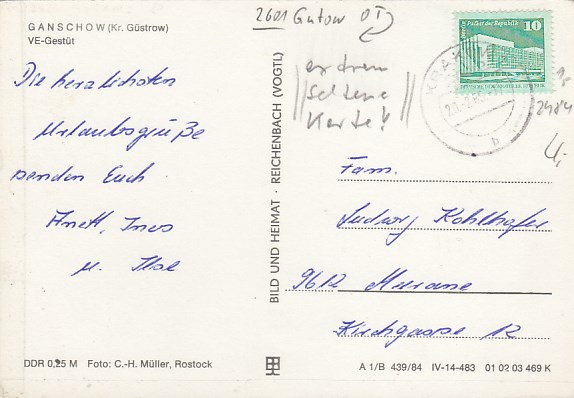 GANSCHOW (Kr. Güstrow)
VE-Gestüt
Die herzlichsten
Urlaubsgrüße
senden Euch
Anett, Ines
u. Ilse
DDR 0,25 M Foto: C.-H. Müller, Rostock
BILD UND HEIMAT · REICHENBACH (VOGTL)
2601 Gutow OT
extrem
seltene
Karte!
Palast der Republik 10
KRAK
b
2484
Fam.
Ludwig Kohlhofer
9612 Meerane
Kirchgasse 12
A 1/B 439/84 IV-14-483 01 02 03 469 K